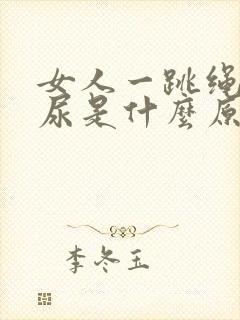 女人一跳绳
尿是什麼原
李冬玉